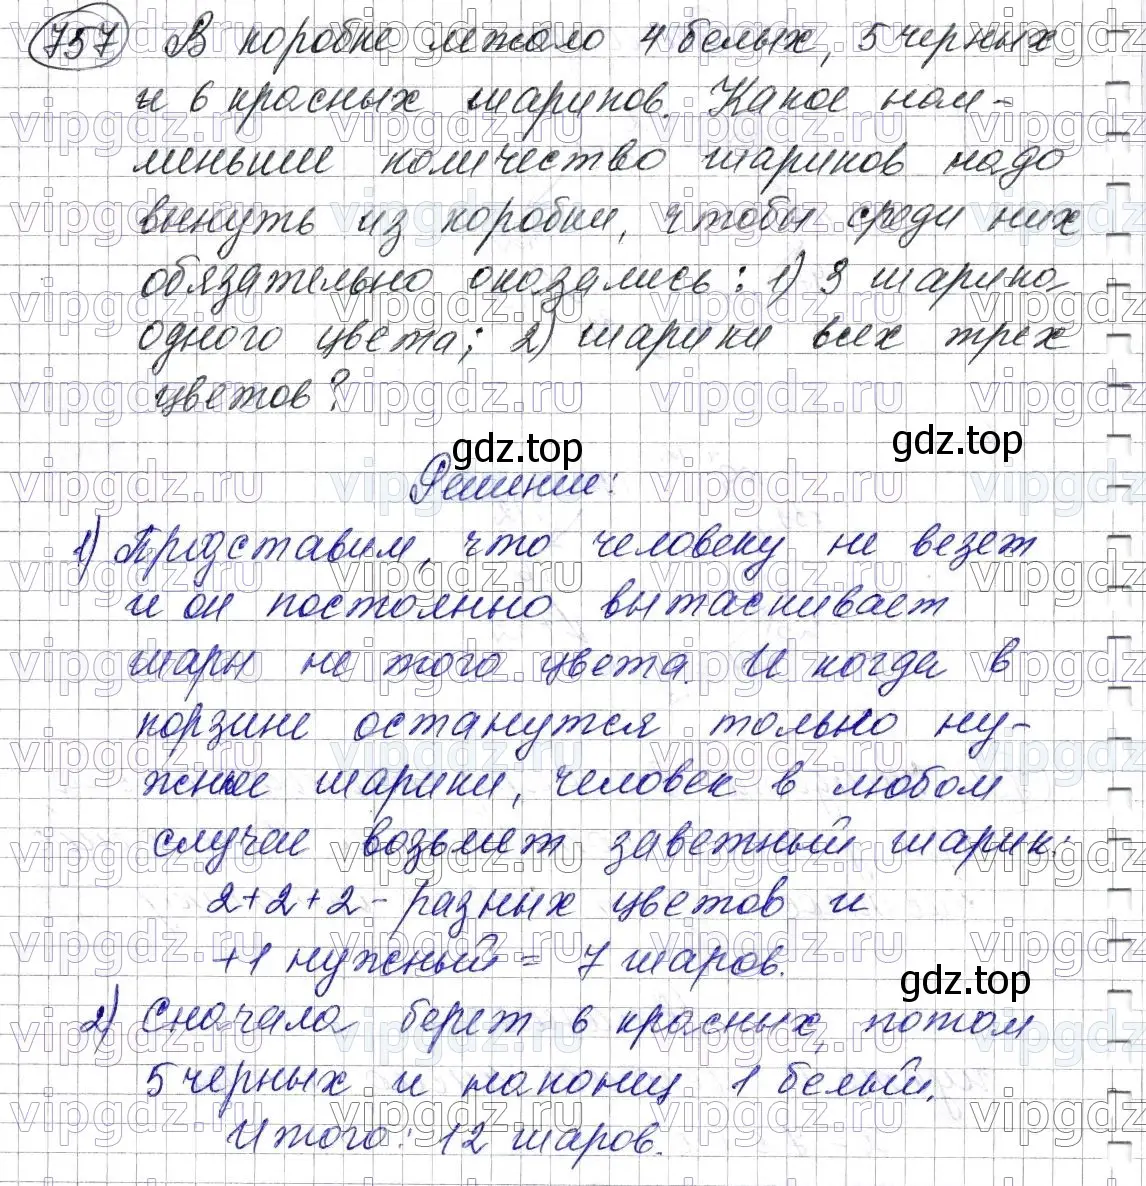 757 В коробке лежало 4 белых, 5 черных
и 6 красных шариков. Какое наи-
меньшее количество шариков надо
вынуть из коробки, чтобы среди них
обязательно оказались: 1) 3 шарика
одного цвета; 2) шарики всех трех
цветов?
gdz.top
gdz.top
Решение:
1) Представим, что человеку не везет
и он постоянно вытаскивает
шары не того цвета. И когда в
корзине останутся только ну-
жные шарики, человек в любом
случае возьмет заветный шарик:
2+2+2 - разных цветов и
+1 нужный = 7 шаров.
gdz.top
2) Сначала берет 6 красных, потом
5 черных и наконец 1 белый.
Итого: 12 шаров.
vipgdz.ru